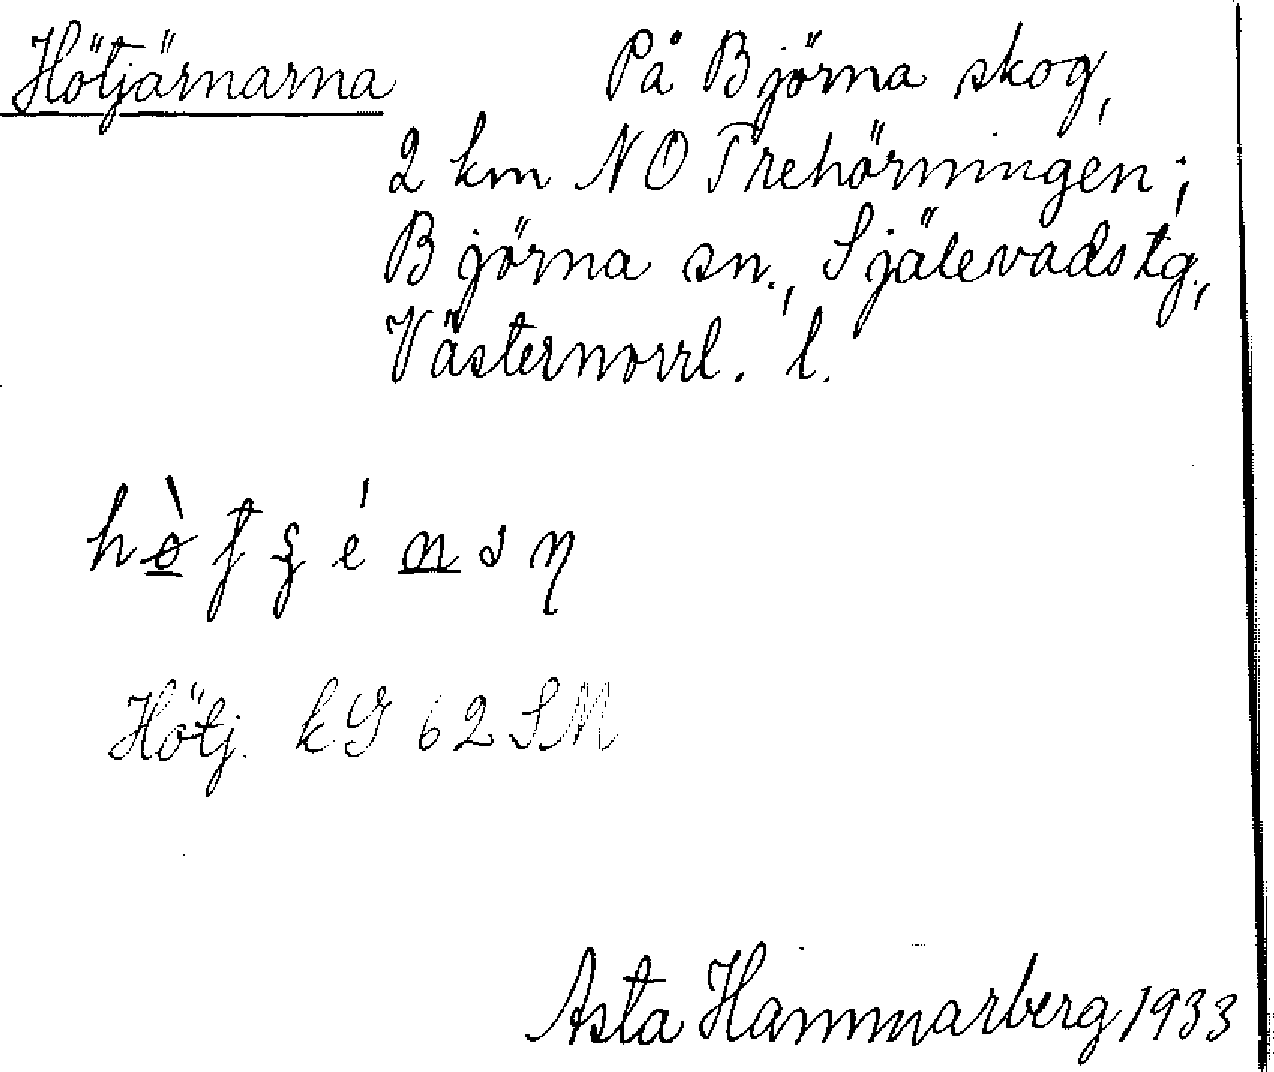 Hötjärnarna På Björna skog,
2 km NO Trehörningen;
Björna sn., Själevads tg.,
Västernorrl. l.
Hötj. kG 62 SM
Asta Hammarberg 1933